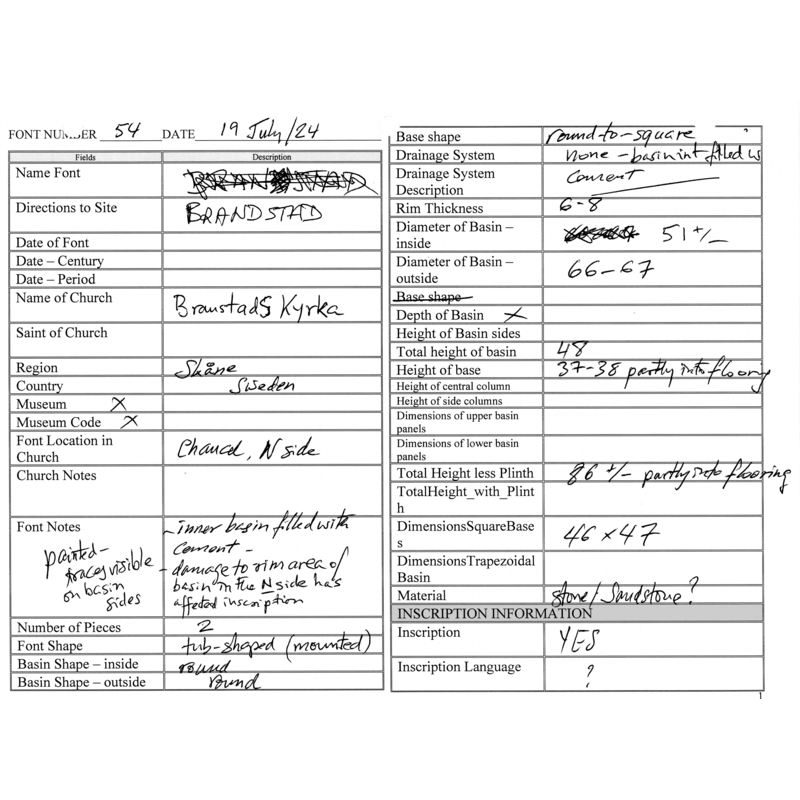 FONT NUMBER 54 DATE 19 July/24
Fields Description
Name Font
Directions to Site BRANDSTAD
Date of Font
Date – Century
Date – Period
Name of Church Branstads Kyrka
Saint of Church
Region Skåne
Country Sweden
Museum X
Museum Code X
Font Location in
Church Chancel, N side
Church Notes
Font Notes
painted-
traces visible
on basin
sides
- inner basin filled with
cement -
- damage to rim area of
basin in the N side has
affected inscription
Number of Pieces 2
Font Shape tub-shaped (mounted)
Basin Shape – inside round
Basin Shape – outside round
Base shape round-to-square
Drainage System none - basin int filled w
Drainage System
Description cement
Rim Thickness 6-8
Diameter of Basin –
inside 51 +/-
Diameter of Basin –
outside 66-67
Base shape
Depth of Basin X
Height of Basin sides
Total height of basin 48
Height of base 37-38 partly into flooring
Height of central column
Height of side columns
Dimensions of upper basin
panels
Dimensions of lower basin
panels
Total Height less Plinth 86 +/- partly into flooring
TotalHeight_with_Plint
h
DimensionsSquareBase
s 46 x 47
DimensionsTrapezoidal
Basin
Material stone/Sandstone?
INSCRIPTION INFORMATION
Inscription YES
Inscription Language ?
1